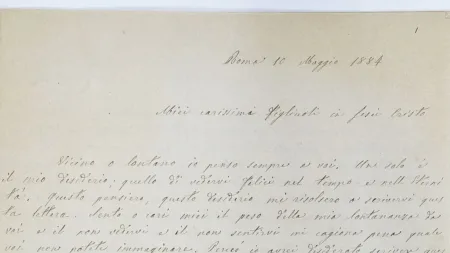 1
Roma 10 Maggio 1884
Miei carissimi Figliuoli in Gesù Cristo
Vicino o lontano io penso sempre a voi. Un solo è
il mio desiderio, quello di vedervi felici nel tempo e nell'Eterni
tà. Questo pensiero, questo desiderio mi risolsero a scrivervi que
sta lettera. Sento o cari miei il peso della mia lontananza da
voi e il non vedervi e il non sentirvi mi cagiona pena quale
voi non potete immaginare. Perciò io avrei desiderato scrivere ques